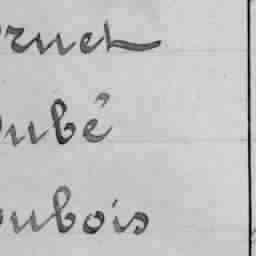 ruet
ubé
ubois